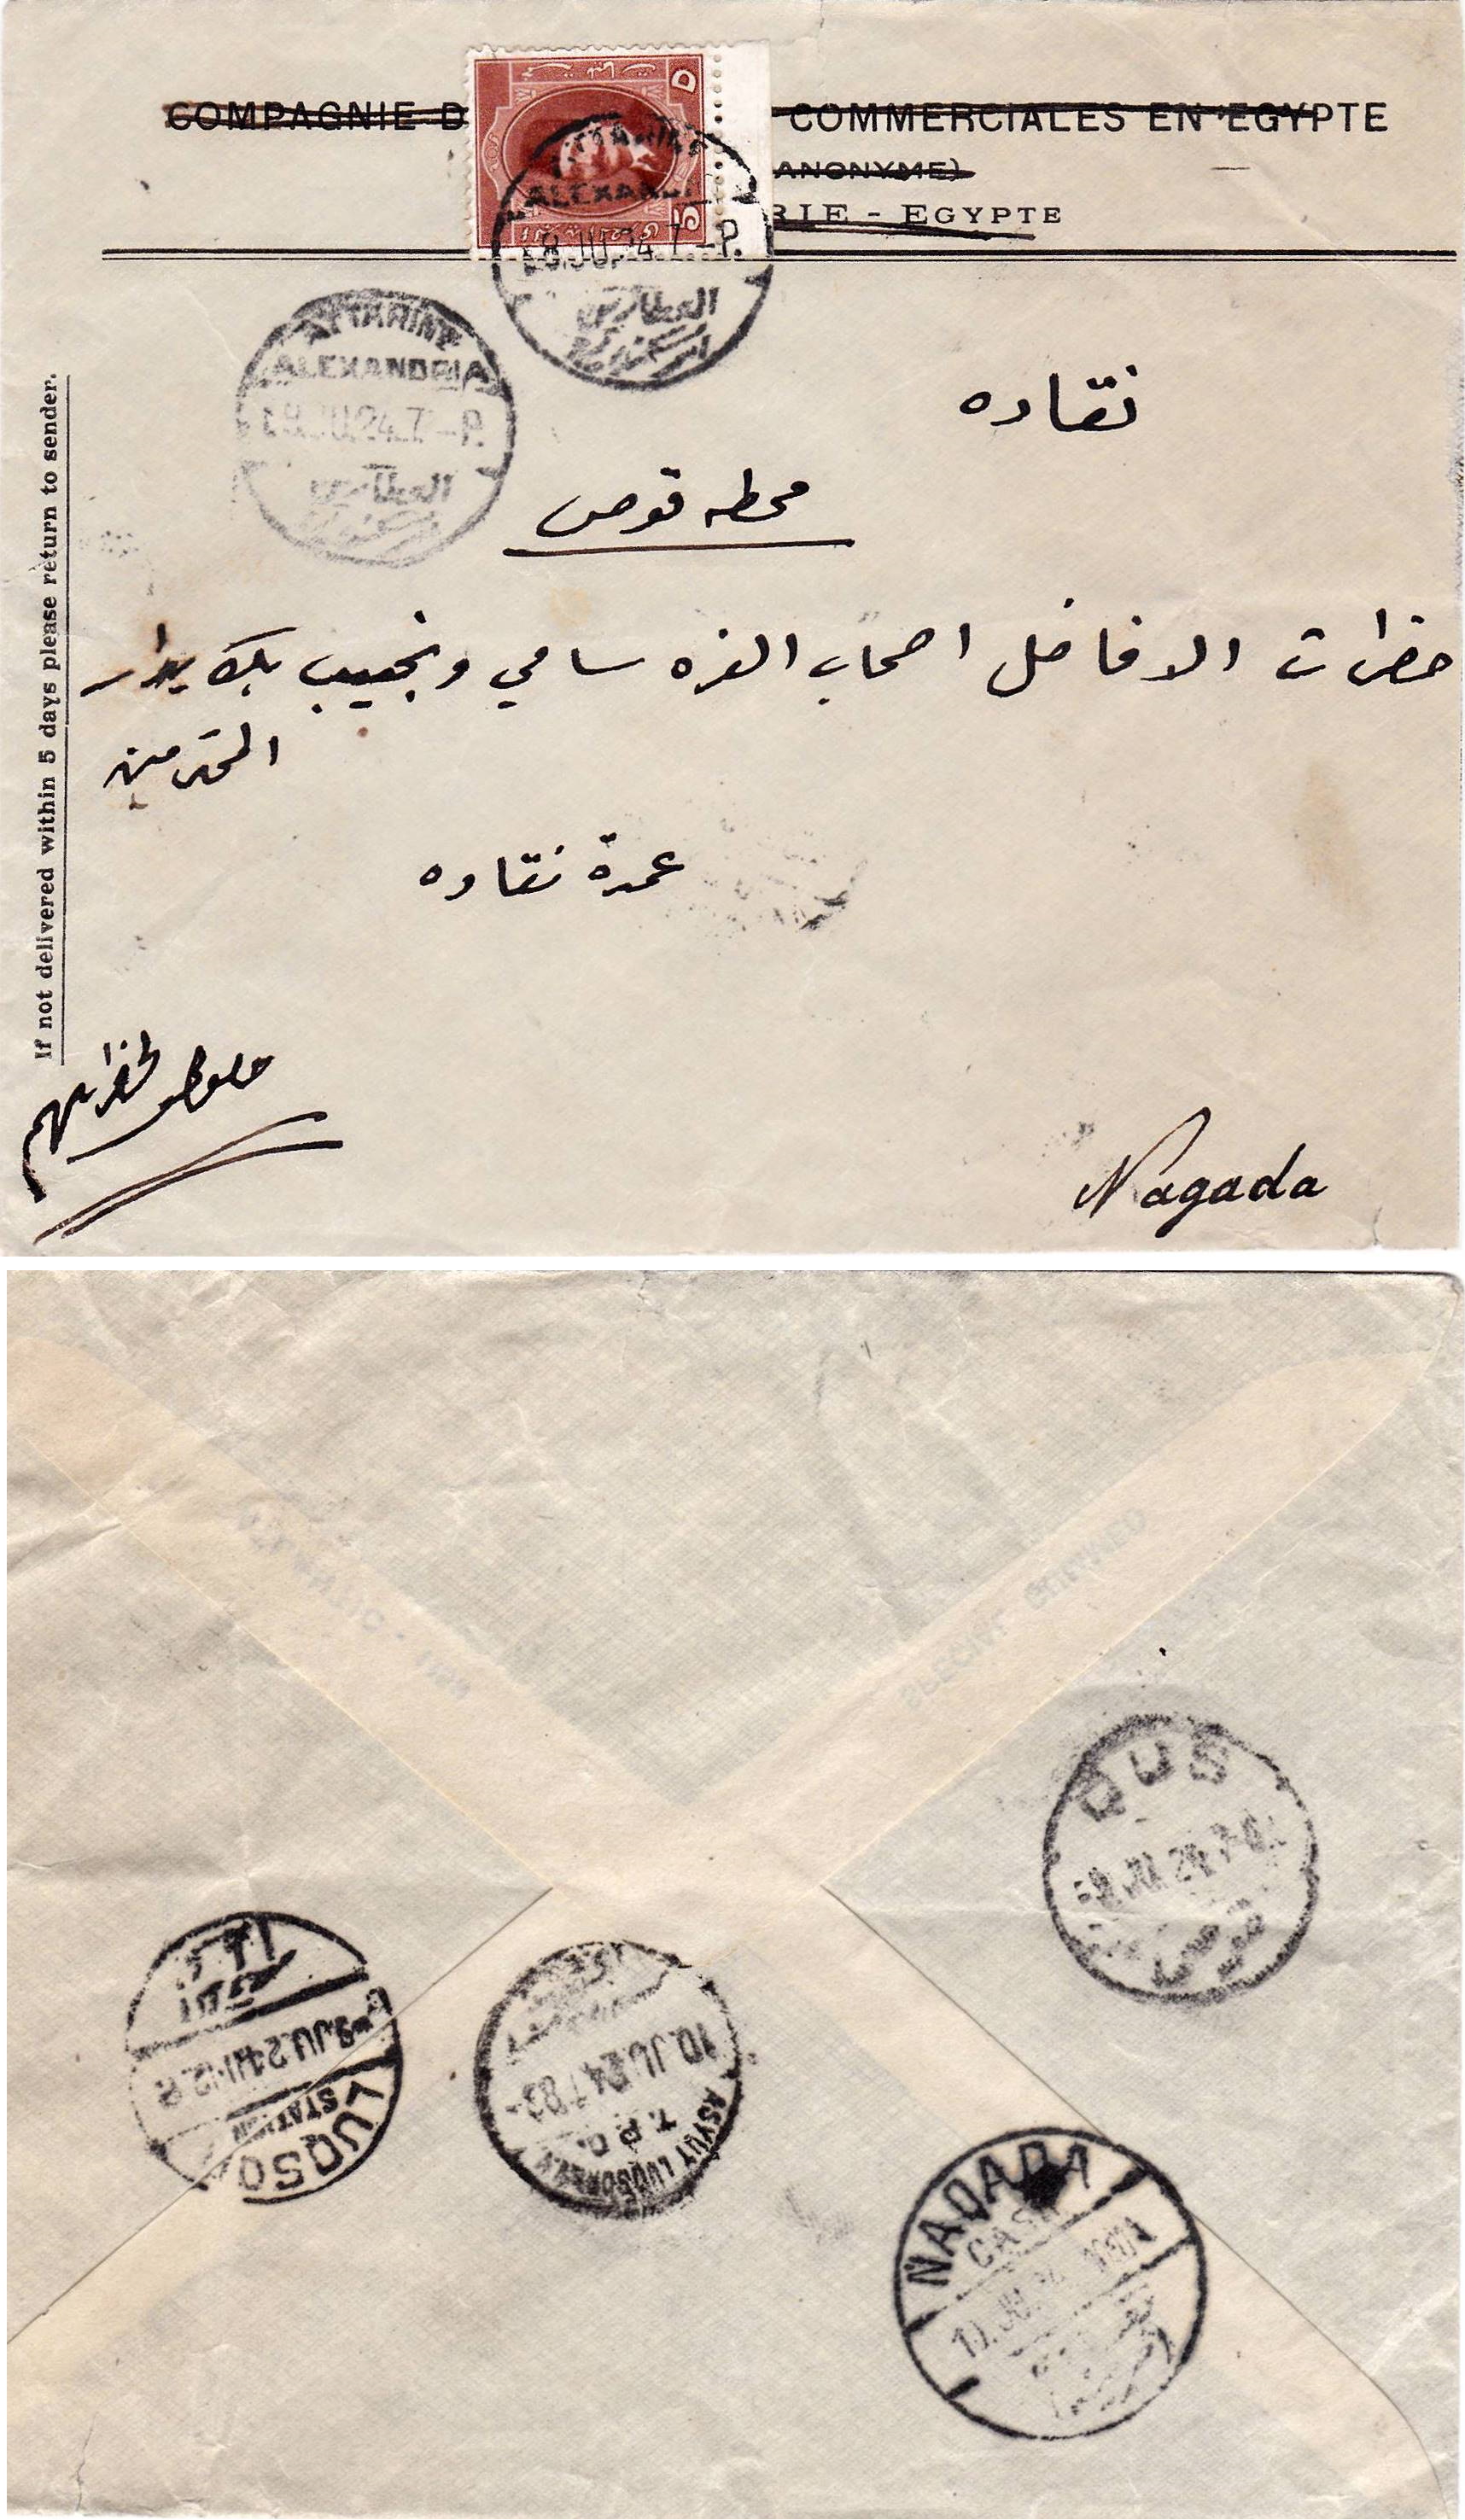 COMPAGNIE D COMMERCIALES EN EGYPTE
ANONYME)
RIE - EGYPTE
5
ATTARINE
ALEXANDRIA
8.JU.24.7 -P.
العطارين
اسكندرية
ATTARINE
ALEXANDRIA
8.JU.24.7 -P.
العطارين
If not delivered within 5 days please return to sender.
نقاده
محطه قوص
حضرات الافاضل اصحاب العزه سامي ونجيب بك
المحترمين
عمدة نقاده
لحضراتهم
Nagada
QUS
قوص
LUQSO
STATION
9.JU.24.11-12.P
10.JU.24.T.83
ASYUT LUQSOR
T.P.O.
NAQADA
CASH
10.JU.24